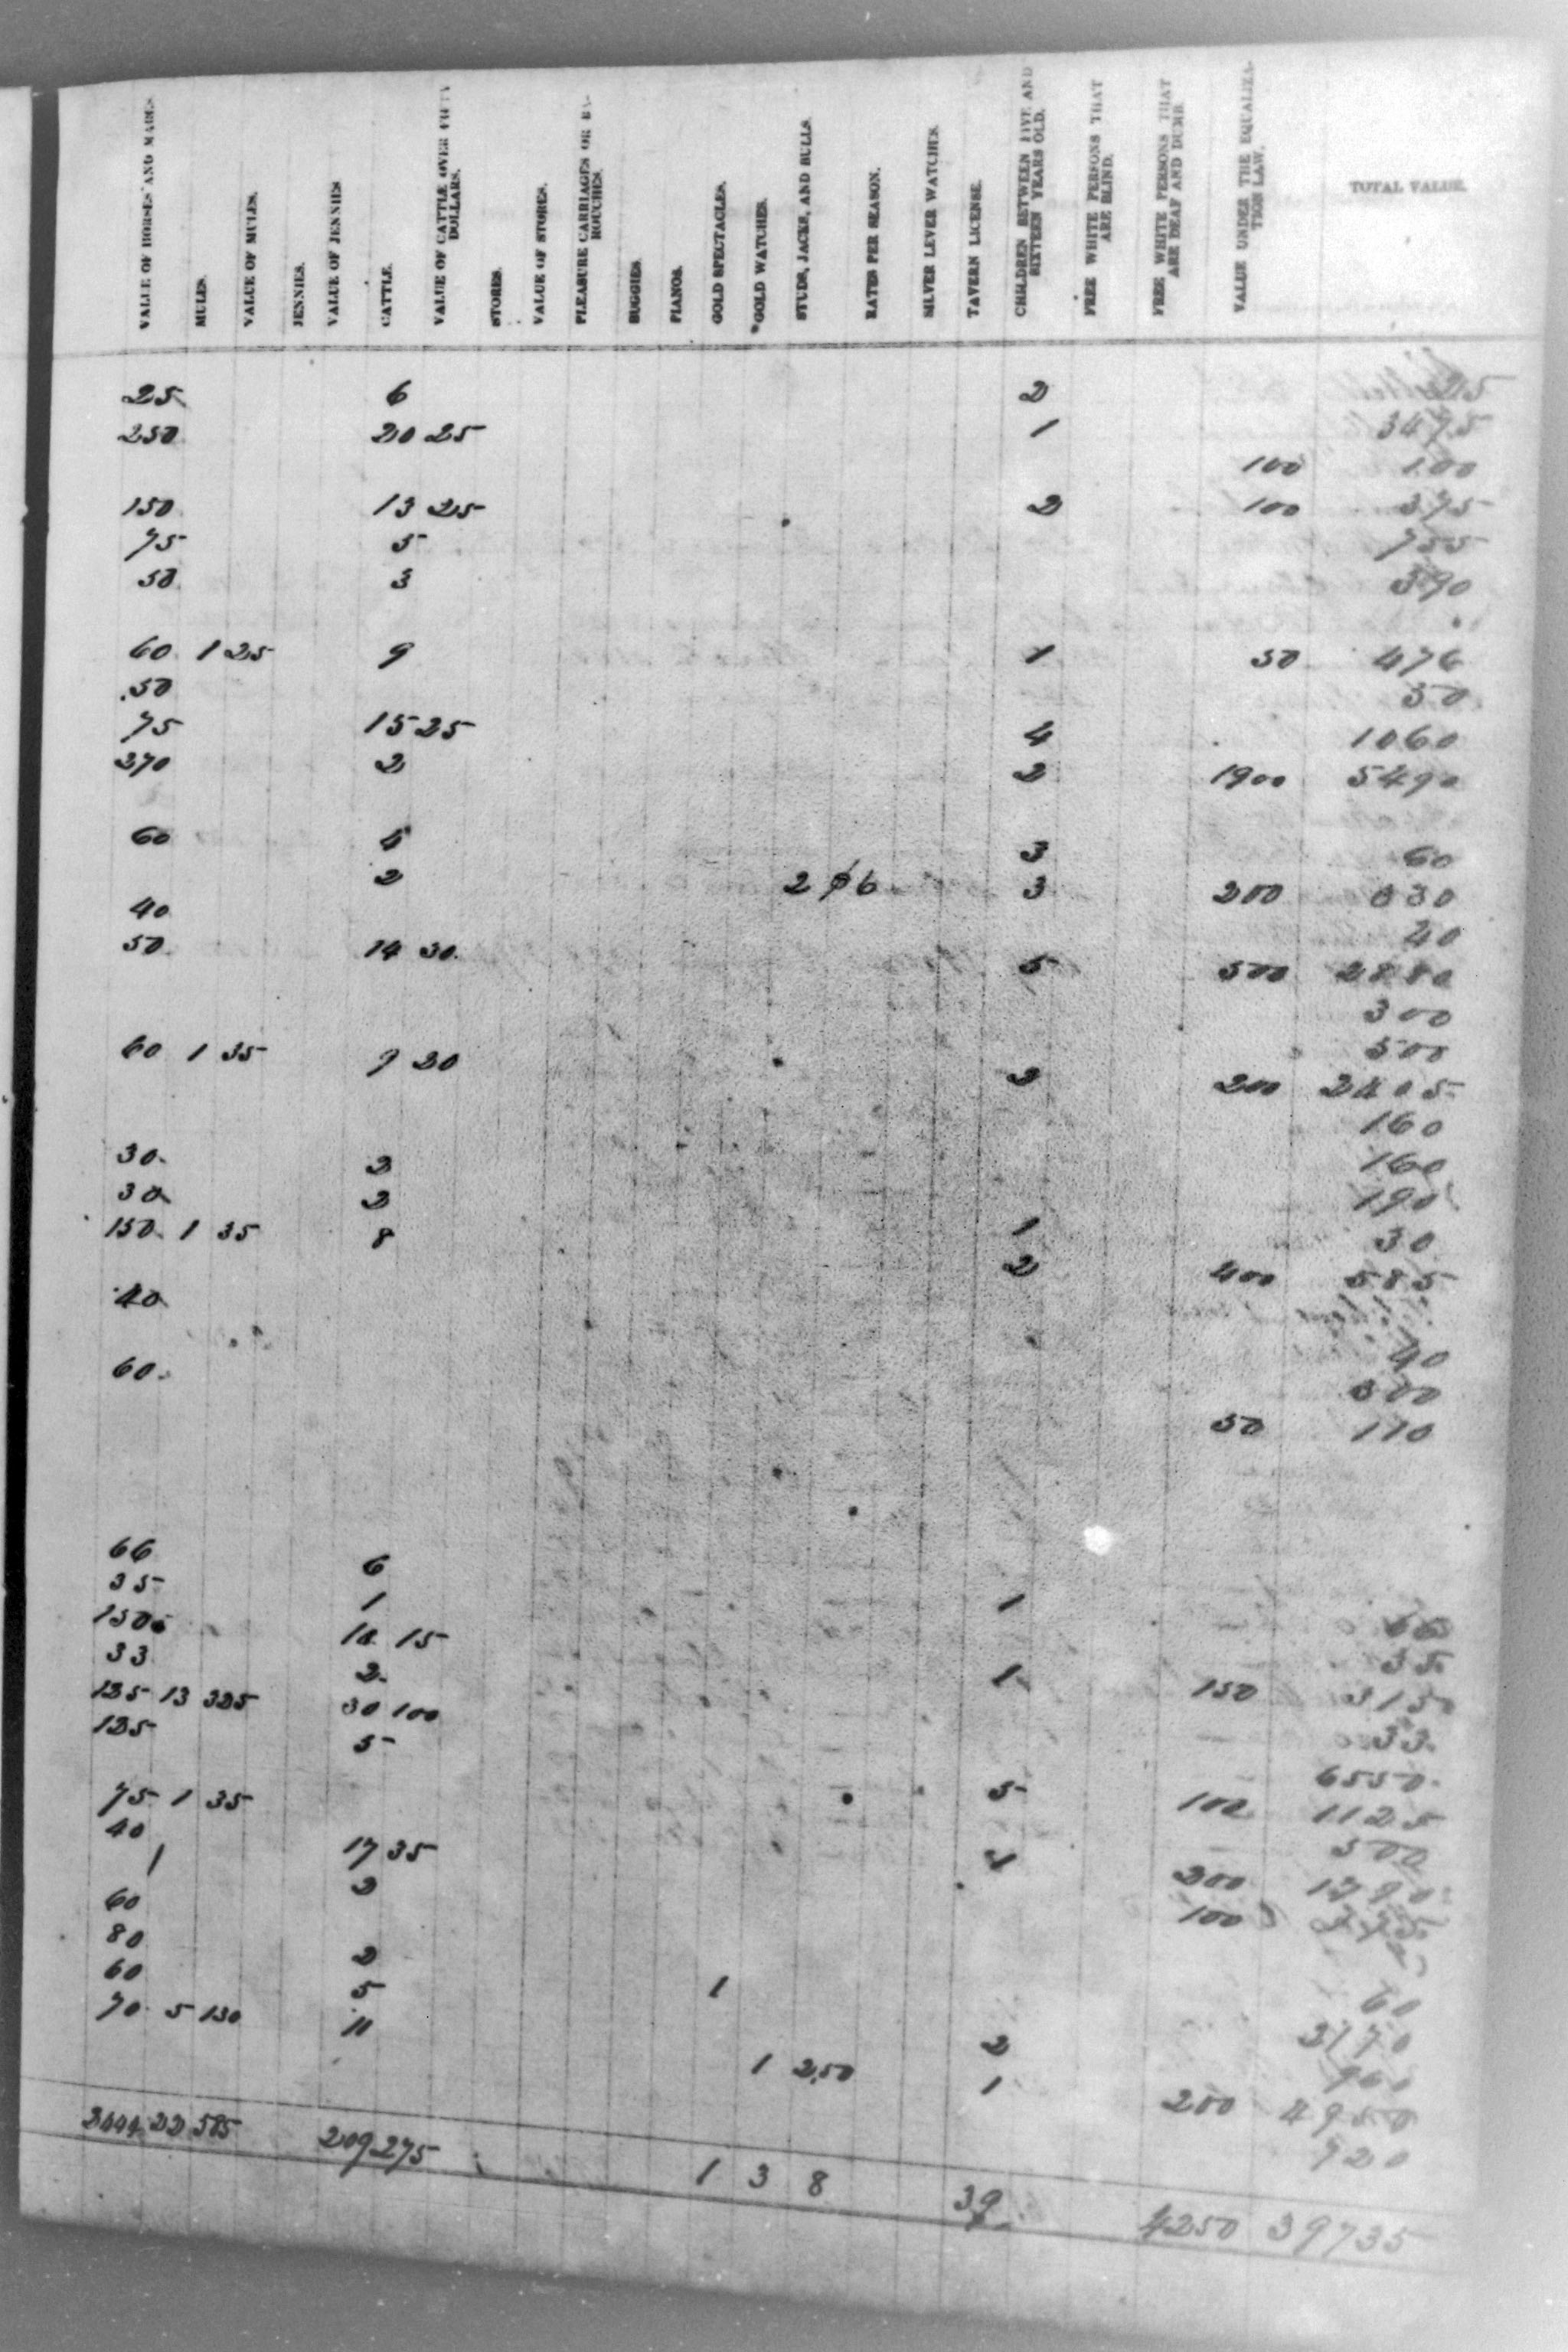 VALUE OF HORSES AND MARES.
MULES.
VALUE OF MULES.
JENNIES.
VALUE OF JENNIES
CATTLE.
VALUE OF CATTLE OVER FIFTY DOLLARS.
STORES.
VALUE OF STORES.
PLEASURE CARRIAGES OR BA-ROUCHES.
BUGGIES.
PIANOS.
GOLD SPECTACLES.
*GOLD WATCHES.
STUDS, JACKS, AND BULLS.
RATES PER SEASON.
SILVER LEVER WATCHES.
TAVERN LICENSE.
CHILDREN BETWEEN FIVE AND SIXTEEN YEARS OLD.
FREE WHITE PERSONS THAT ARE BLIND.
FREE WHITE PERSONS THAT ARE DEAF AND DUMB.
VALUE UNDER THE EQUALIZA-TION LAW.
TOTAL VALUE.
25 6 2 25
250 20 25 1 3475
100 100
150 13 25 2 100 375
75 5 755
50 3 390
60 1 25 9 1 50 476
50 50
75 15 25 4 1060
270 2 2 1900 5490
60 4 3 60
2 2 6 3 200 330
40 40
50 14 30 5 500 2880
300
500
60 1 35 9 20 2 200 2405
160
160
30 2 190
30 2 1 30
150 1 35 8 2 400 585
40 40
300
60 50 110
66 6 66
35 1 1 35
150 18 15 150 3150
33 2 1 33
125 13 325 30 100 6550
125 5 5 100 1125
500
75 1 35 17 35 4 200 1790
40 2 100
1
60 2 60
80 5 1 3170
60 11 2 960
70 5 130 1 2.50 1 200 4950
920
2444 22 585 209 275 1 3 8 39 4250 39735